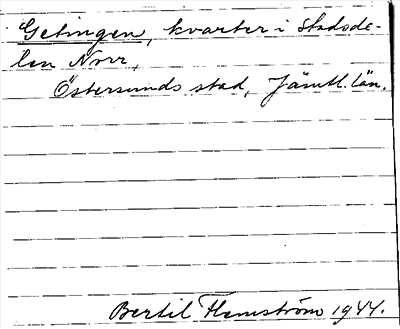 Getingen, kvarter i Stadsde-
len Norr,
Östersunds stad, Jämtl. län.
Bertil Flemström 1944.